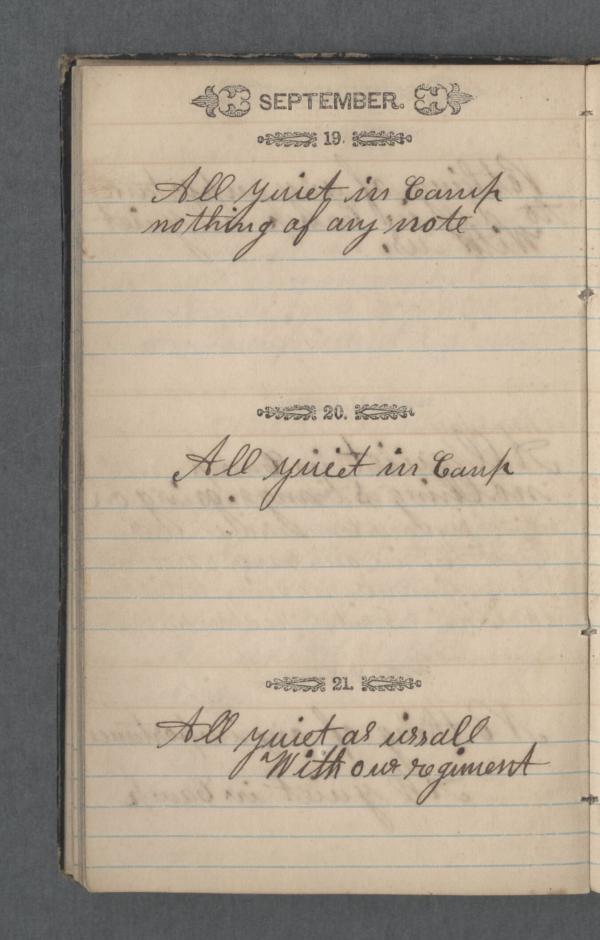 SEPTEMBER.
19.
All quiet in Camp
nothing of any note
20.
All quiet in Camp
21.
All quiet as ussall
With our regiment